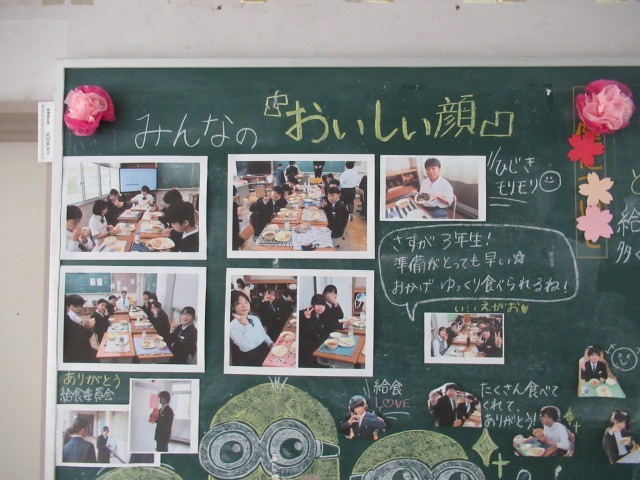 みんなの『おいしい顔』
ひじき
モリモリ
さすが3年生!
準備がとっても早い☆
おかげでゆっくり食べられるね!
いいえがお♥
ありがとう
給食委員会
給食
LOVE
たくさん食べて
くれて、
ありがとう!
と
給
多く